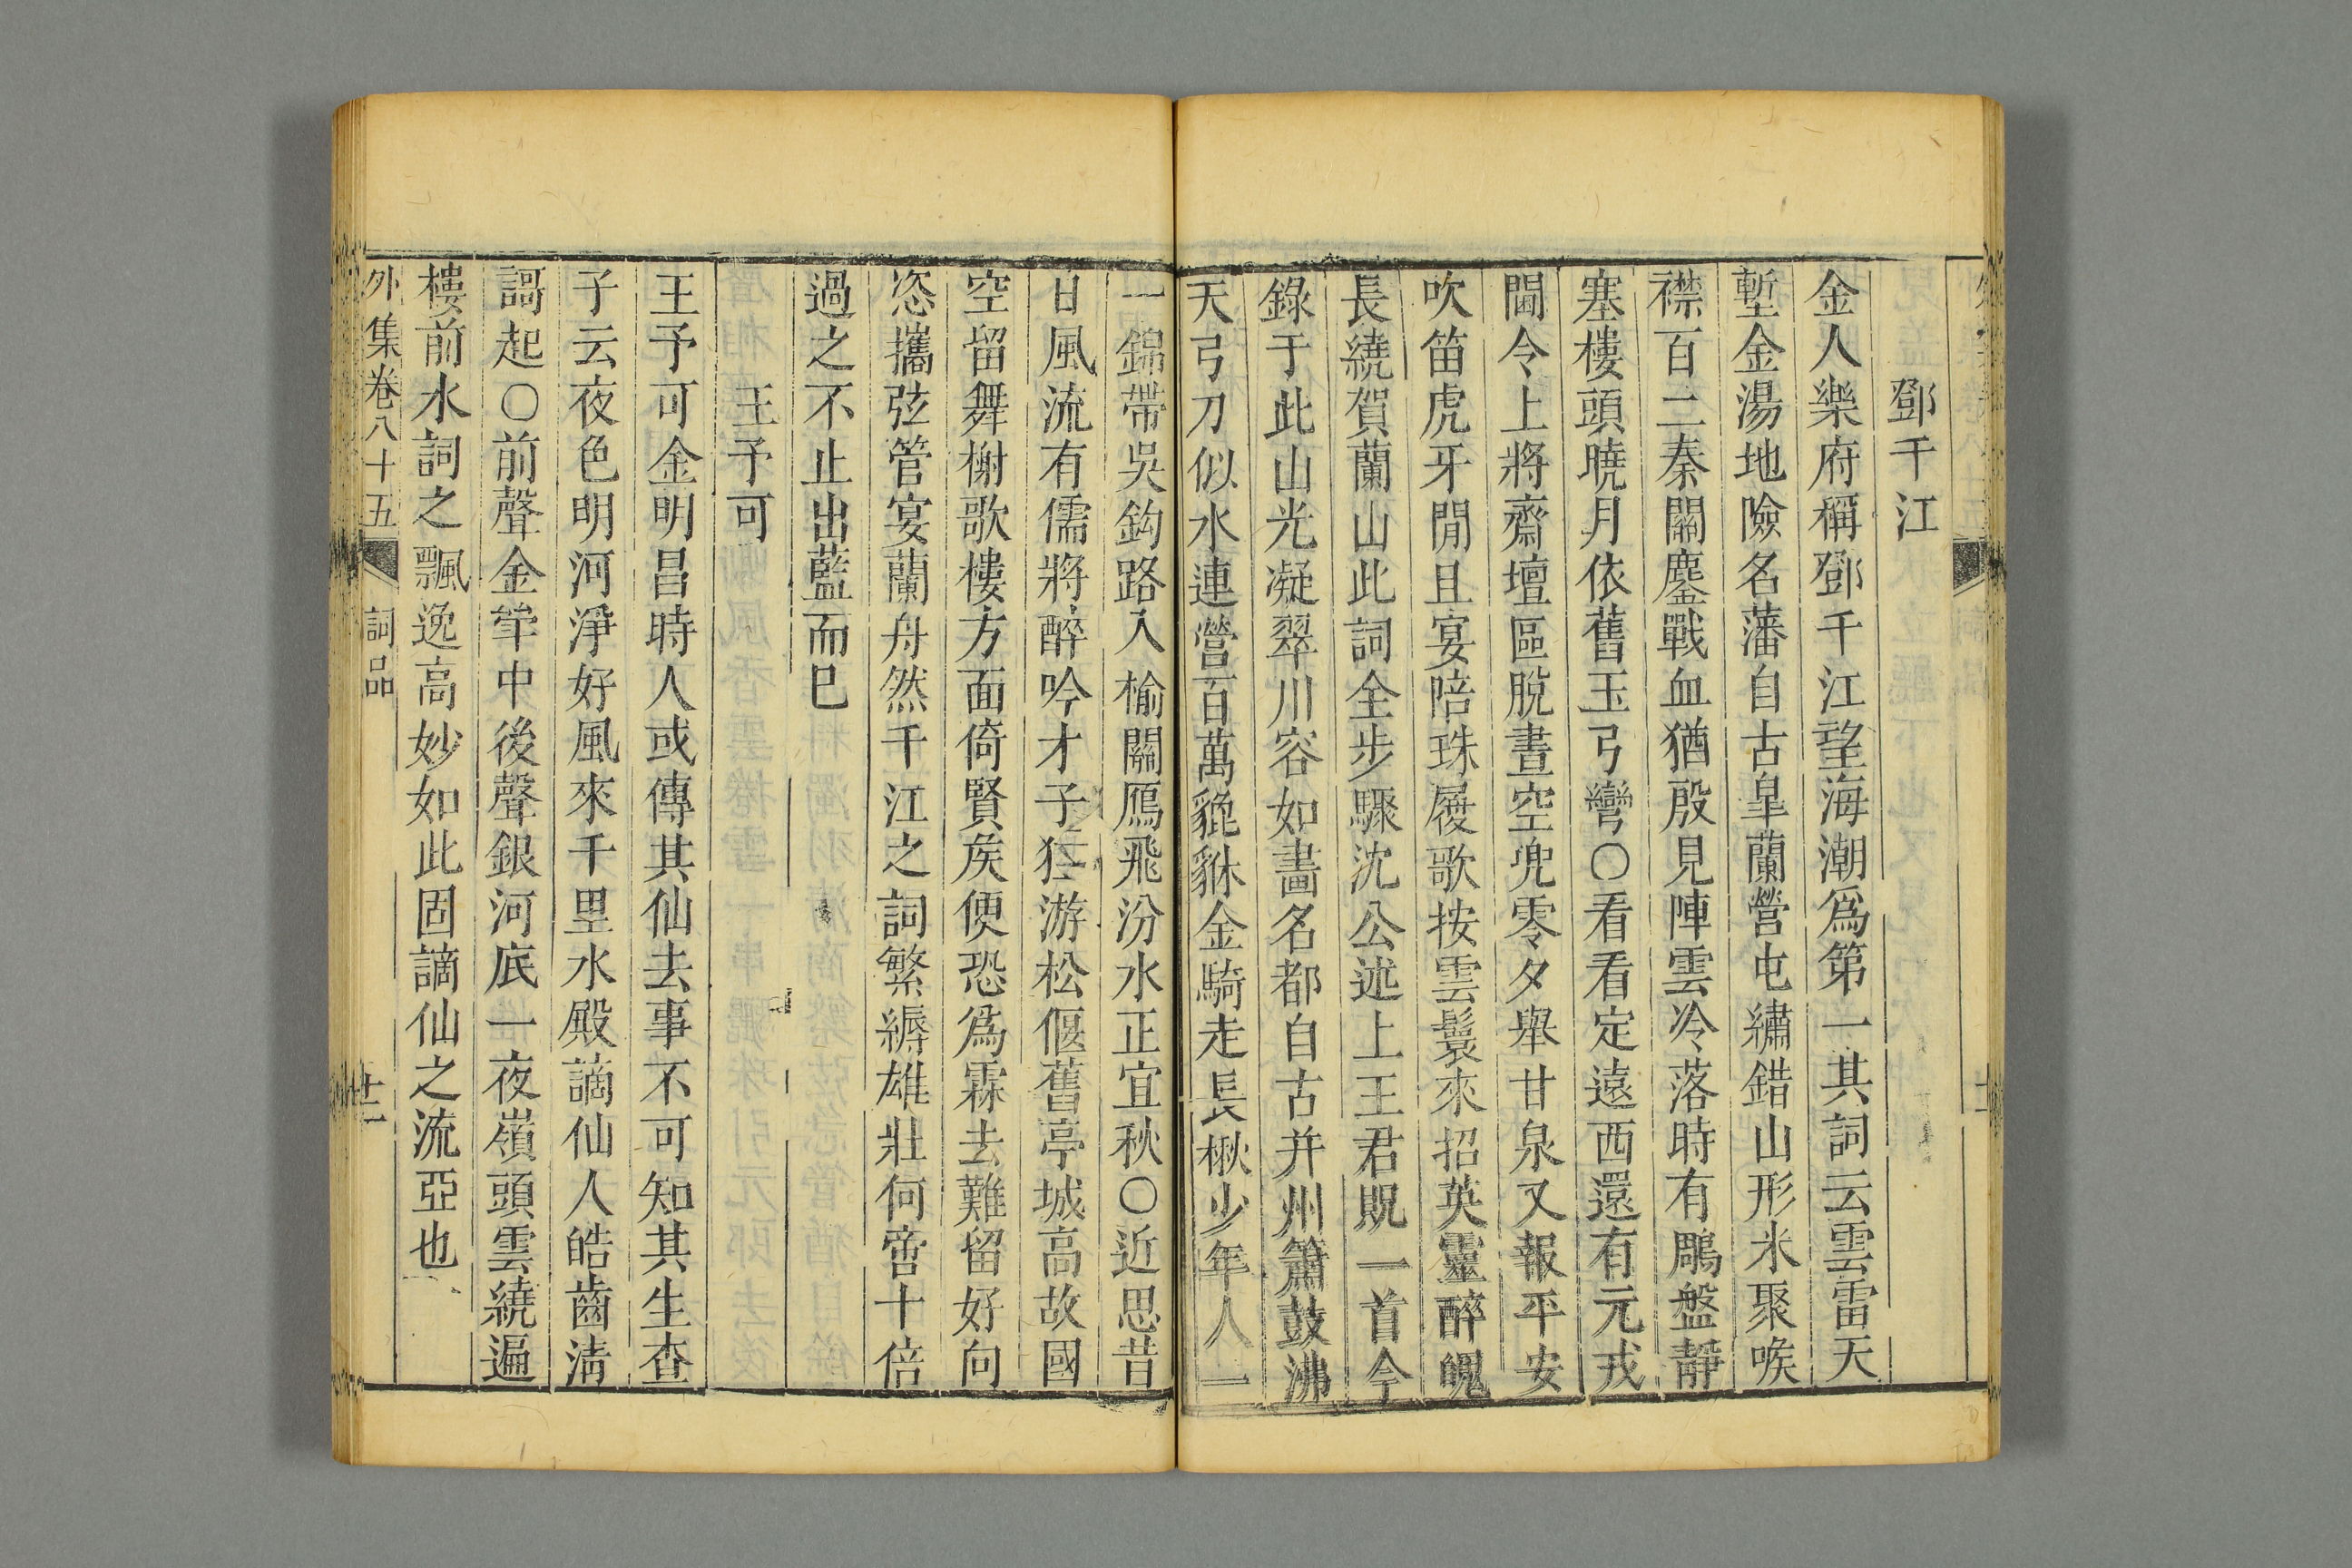 鄧千江
金人樂府稱鄧千江望海潮爲第一其詞云雲雷天
塹金湯地險名藩自古臯蘭營屯繡錯山形米聚喉
襟百二秦關鏖戰血猶殷見陣雲冷落時有鵰盤靜
塞樓頭曉月依舊玉弓彎○看看定遠西還有元戎
閫令上將齋壇區脫晝空兜零夕舉甘泉又報平安
吹笛虎牙閒且宴陪珠履歌按雲鬟來招英靈醉魄
長繞賀蘭山此詞全步驟沈公述上王君貺一首今
錄于此山光凝翠川容如畵名都自古并州簫鼓沸
天弓刀似水連營百萬貔貅金騎走長楸少年人一
一錦帶吳鈎路入榆關鴈飛汾水正宜秋○近思昔
日風流有儒將醉吟才子狂游松偃舊亭城高故國
空留舞榭歌樓方面倚賢矦便恐爲霖去難留好向
恣攜弦管宴蘭舟然千江之詞繁縟雄壯何啻十倍
過之不止出藍而巳
王予可
王予可金明昌時人或傳其仙去事不可知其生查
子云夜色明河淨好風來千里水殿謫仙人皓齒淸
謌起○前聲金斝中後聲銀河底一夜嶺頭雲繞遍
樓前水詞之飄逸高妙如此固謫仙之流亞也
外集卷八十五 詞品 十二